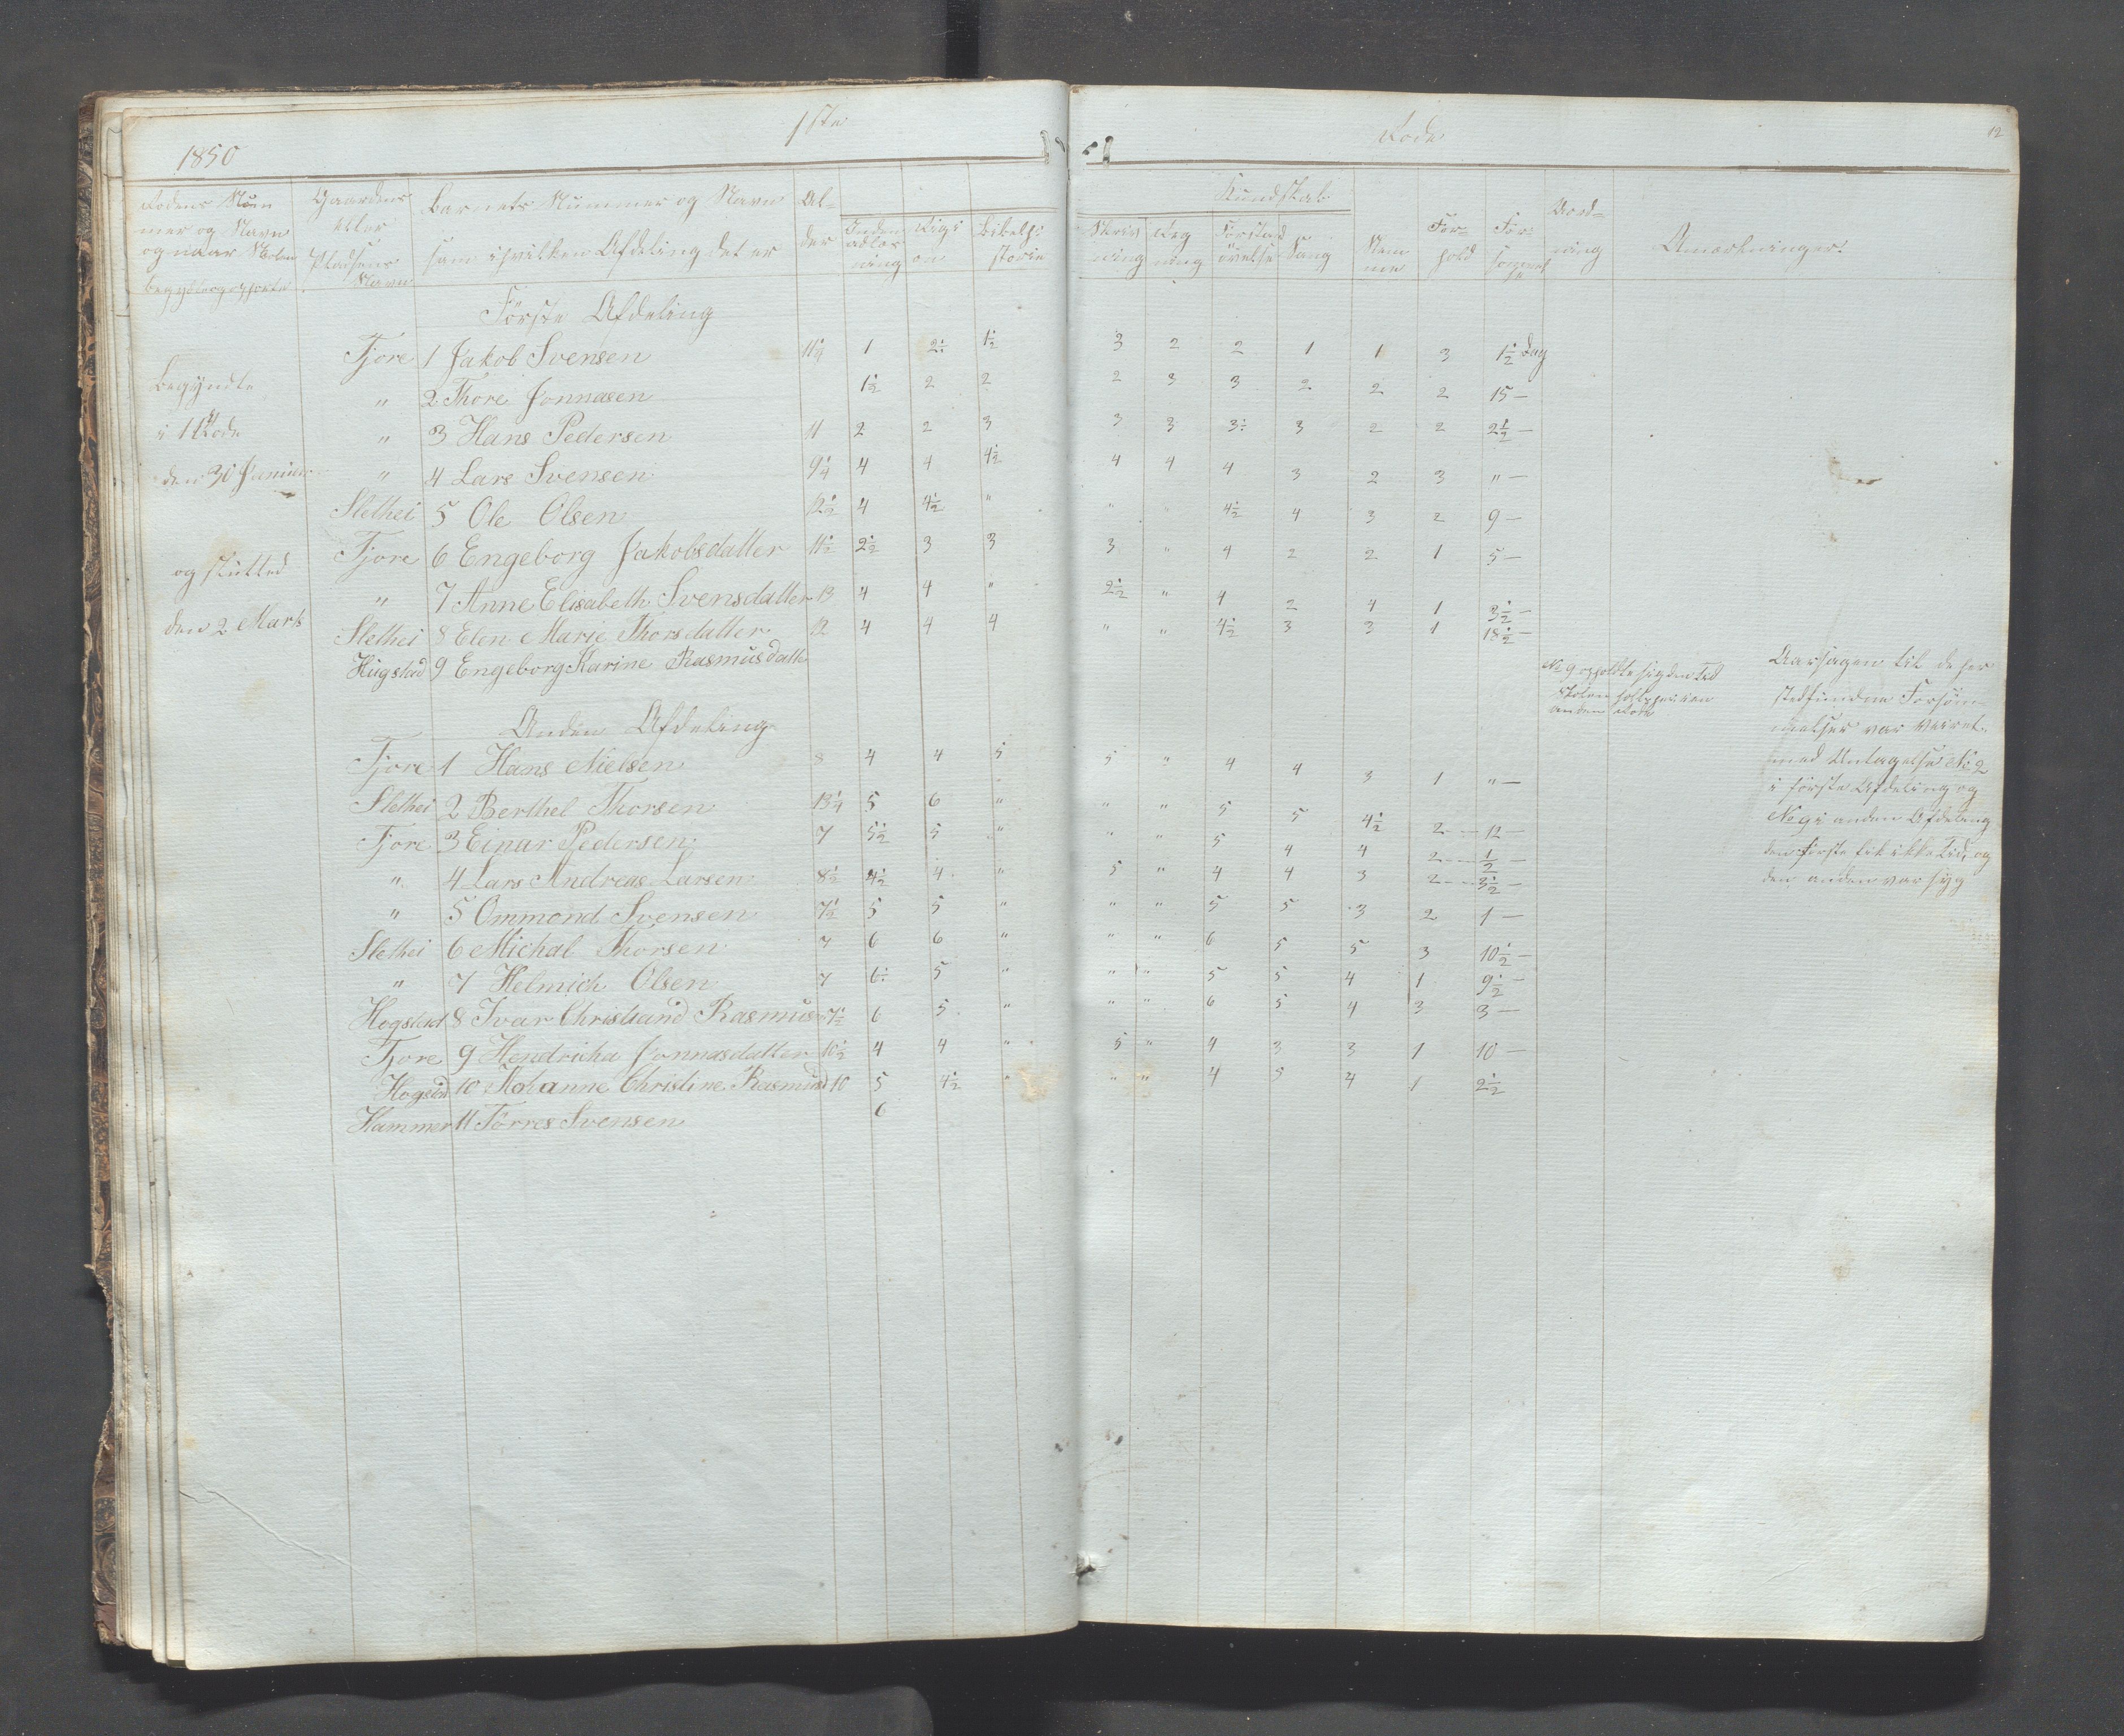 1ste Rode 12
1850
Rodens Num Gaardens Barnets Nummer og Navn Al- Kundskab Vand-
mer og Navn eller samt i hvilken Afdeling det er der Inden- Religi Bibelhi- Skriv Reg Forstand Sang Nem For- For- ning Anmærkninger
og naar Skolen Pladsens adlæs on storie ning ning øvelse me hold sømmel
begyndte og ophørte Navn ning se
Første Afdeling
Fjore 1 Jakob Svensen 11 1/4 1 2: 1 1/2 3 2 2 1 1 3 1 1/2 Dag
Begyndte " 2 Thore Jonnasen 1 1/2 2 2 2 3 3 2 2 2 15 —
i 1ste Rode " 3 Hans Pedersen 11 2 2 3 3 3 3: 3 2 2 2 1/2 —
den 30 Januar " 4 Lars Svensen 9 1/4 4 4 4 1/2 4 4 4 3 2 3 " —
Slethei 5 Ole Olsen 12 1/2 4 4 1/2 " " " 4 1/2 4 3 2 9 —
og slutted Fjore 6 Engeborg Jakobsdatter 11 1/2 2 1/2 3 3 3 " 4 2 2 1 5 —
" 7 Anne Elisabeth Svensdatter 13 4 4 " 2 1/2 " 4 2 4 1 3 1/2 —
den 2 Marts Slethei 8 Elen Marie Thorsdatter 12 4 4 4 " " 4 1/2 3 3 1 18 1/2 —
Hugstad 9 Engeborg Karine Rasmusdatte
No 9 opholdte sig den Tid
Skolen holdtes i en
anden Rode
Aarsagen til de her
stedfundne Forsøm-
melser var Veiret
med Untagelse No 2
i første Afdeling og
No 9 i anden Afdeling
den Første fik ikke Tid, og
den anden var syg
Anden Afdeling
Fjore 1 Hans Nielsen 8 4 4 5 5 " 4 4 3 1 " —
Slethei 2 Berthel Thorsen 13 1/4 5 6 " " " 5 5 4 1/2 2 12 —
Fjore 3 Einar Pedersen 7 5 1/2 5 " " " 5 4 4 2 1/2 —
" 4 Lars Andreas Larsen 8 1/2 4 1/2 4 " 5 " 4 4 3 2 3 1/2 —
" 5 Ommond Svensen 7 1/2 5 5 " " " 5 5 3 2 1 —
Slethei 6 Michal Thorsen 7 6 6 " " " 6 5 5 3 10 1/2 —
" 7 Helmich Olsen 7 6: 5 " " " 5 5 4 1 9 1/2 —
Hogstad 8 Ivar Christiand Rasmus 7 1/2 6 5 " " " 6 5 4 3 3 —
Fjore 9 Hendricha Jonnasdatter 10 1/2 4 4 " 5 " 4 3 3 1 10 —
Hogstad 10 Johanne Christine Rasmusd 10 5 4 1/2 " " " 4 5 4 1 2 1/2
Hammer 11 Torres Svensen 6